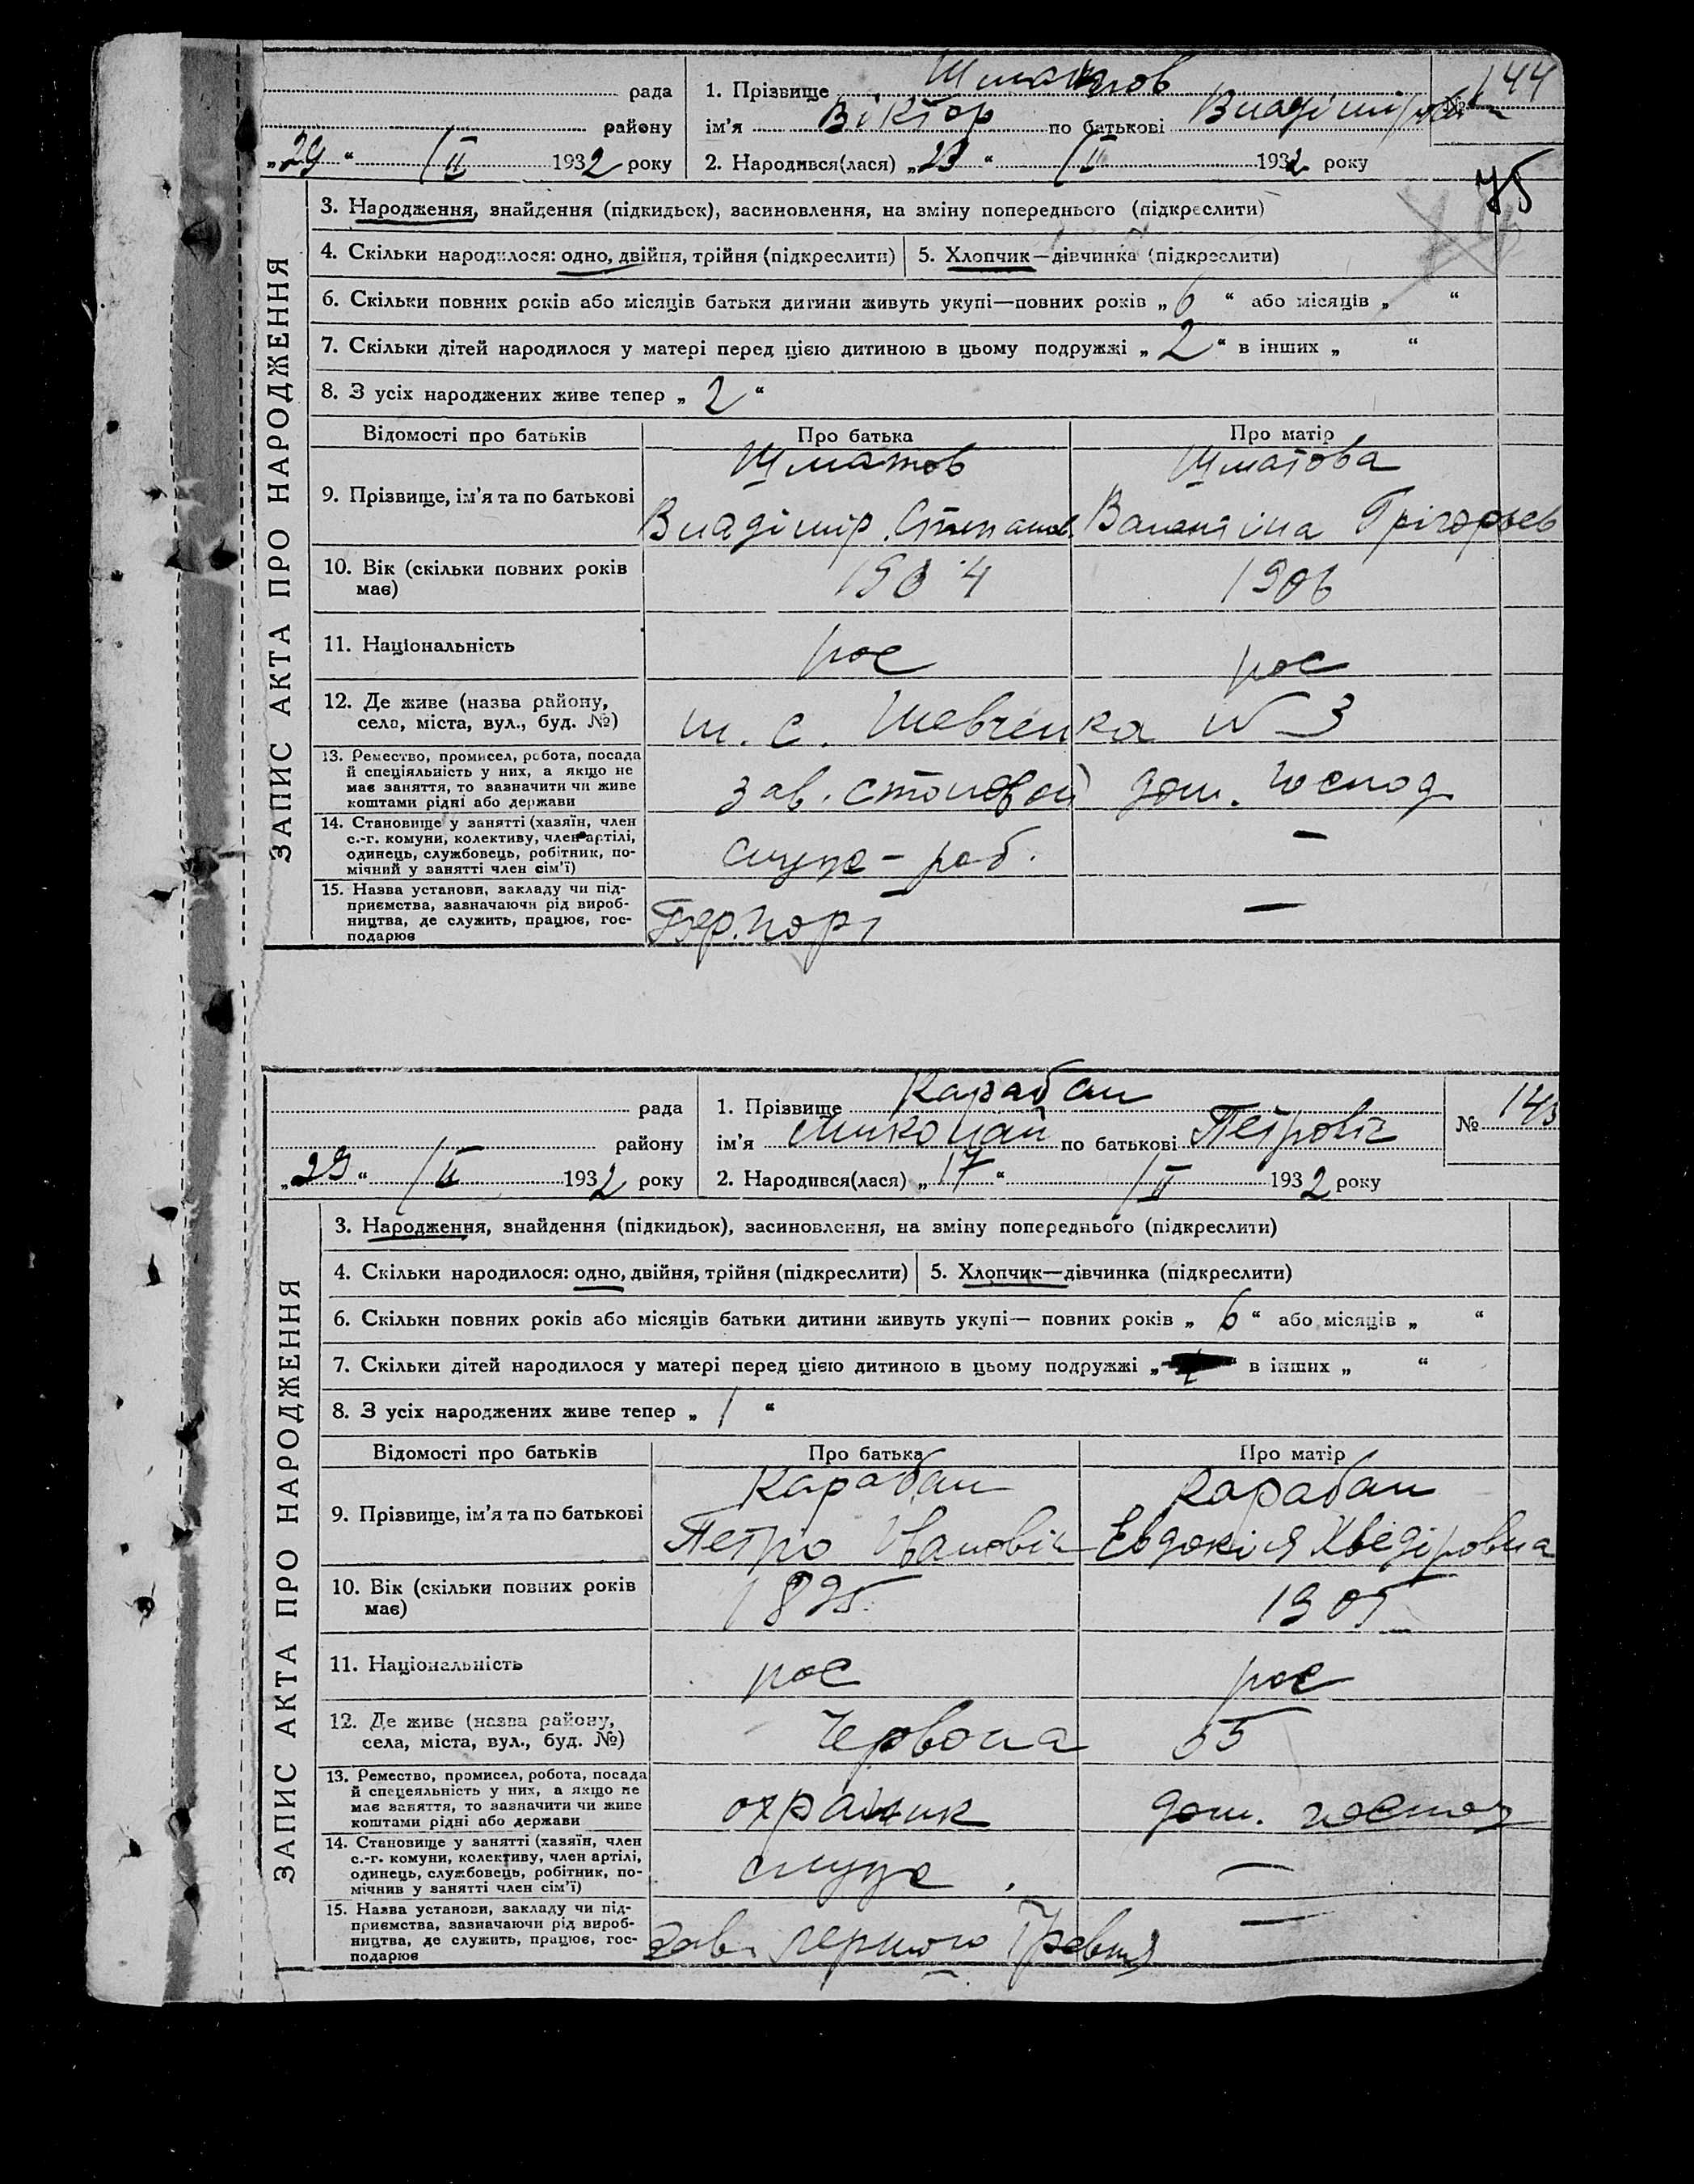 рада
1. Прізвище Шматов
№ 144
району
ім'я Віктор по батькові
„29“ /II 1932 року
2. Народився(лася) „23“ /II 1932 року
75
ЗАПИС АКТА ПРО НАРОДЖЕННЯ
3. Народження, знайдення (підкидьок), засиновлення, на зміну попереднього (підкреслити)
4. Скільки народилося: одно, двійня, трійня (підкреслити)
5. Хлопчик—дівчинка (підкреслити)
6. Скільки повних років або місяців батьки дитини живуть укупі—повних років „6“ або місяців „ “
7. Скільки дітей народилося у матері перед цією дитиною в цьому подружжі „2“ в інших „ “
8. З усіх народжених живе тепер „2“
Відомості про батьків
Про батька
Про матір
9. Прізвище, ім'я та по батькові
Шматов
Владімір Степанов.
Шматова
Валентіна Грігорьев
10. Вік (скільки повних років
має)
1904
1906
11. Національність
рос
рос
12. Де живе (назва району,
села, міста, вул., буд. №)
Шевченка N 3
13. Ремество, промисел, робота, посада
й спеціяльність у них, а якщо не
має заняття, то зазначити чи живе
коштами рідні або держави
зав. столовой
дом. господ
14. Становище у занятті (хазяїн, член
с.-г. комуни, колективу, член артілі,
одинець, службовець, робітник, по-
мічний у занятті член сім'ї)
служ - роб.
—
15. Назва установи, закладу чи під-
приємства, зазначаючи рід вироб-
ництва, де служить, працює, гос-
подарює
—
рада
1. Прізвище Карабан
№ 145
району
ім'я Миколай по батькові Петровіч
„29“ /II 1932 року
2. Народився(лася) „17“ /II 1932 року
ЗАПИС АКТА ПРО НАРОДЖЕННЯ
3. Народження, знайдення (підкидьок), засиновлення, на зміну попереднього (підкреслити)
4. Скільки народилося: одно, двійня, трійня (підкреслити)
5. Хлопчик—дівчинка (підкреслити)
6. Скільки повних років або місяців батьки дитини живуть укупі— повних років „6“ або місяців „ “
7. Скільки дітей народилося у матері перед цією дитиною в цьому подружжі „ “ в інших „ “
8. З усіх народжених живе тепер „1“
Відомості про батьків
Про батька
Про матір
9. Прізвище, ім'я та по батькові
Карабан
Петро Івановіч
Карабан
Евдокія Хведіровна
10. Вік (скільки повних років
має)
1895
1905
11. Національність
рос
рос
12. Де живе (назва району,
села, міста, вул., буд. №)
Червона 55
13. Ремество, промисел, робота, посада
й спецеяльність у них, а якщо не
має заняття, то зазначити чи живе
коштами рідні або держави
охраник
дом. господ
14. Становище у занятті (хазяїн, член
с.-г. комуни, колективу, член артілі,
одинець, службовець, робітник, по-
мічнив у занятті член сім'ї)
служ.
—
15. Назва установи, закладу чи під-
приємства, зазначаючи рід вироб-
ництва, де служить, працює, гос-
подарює
—